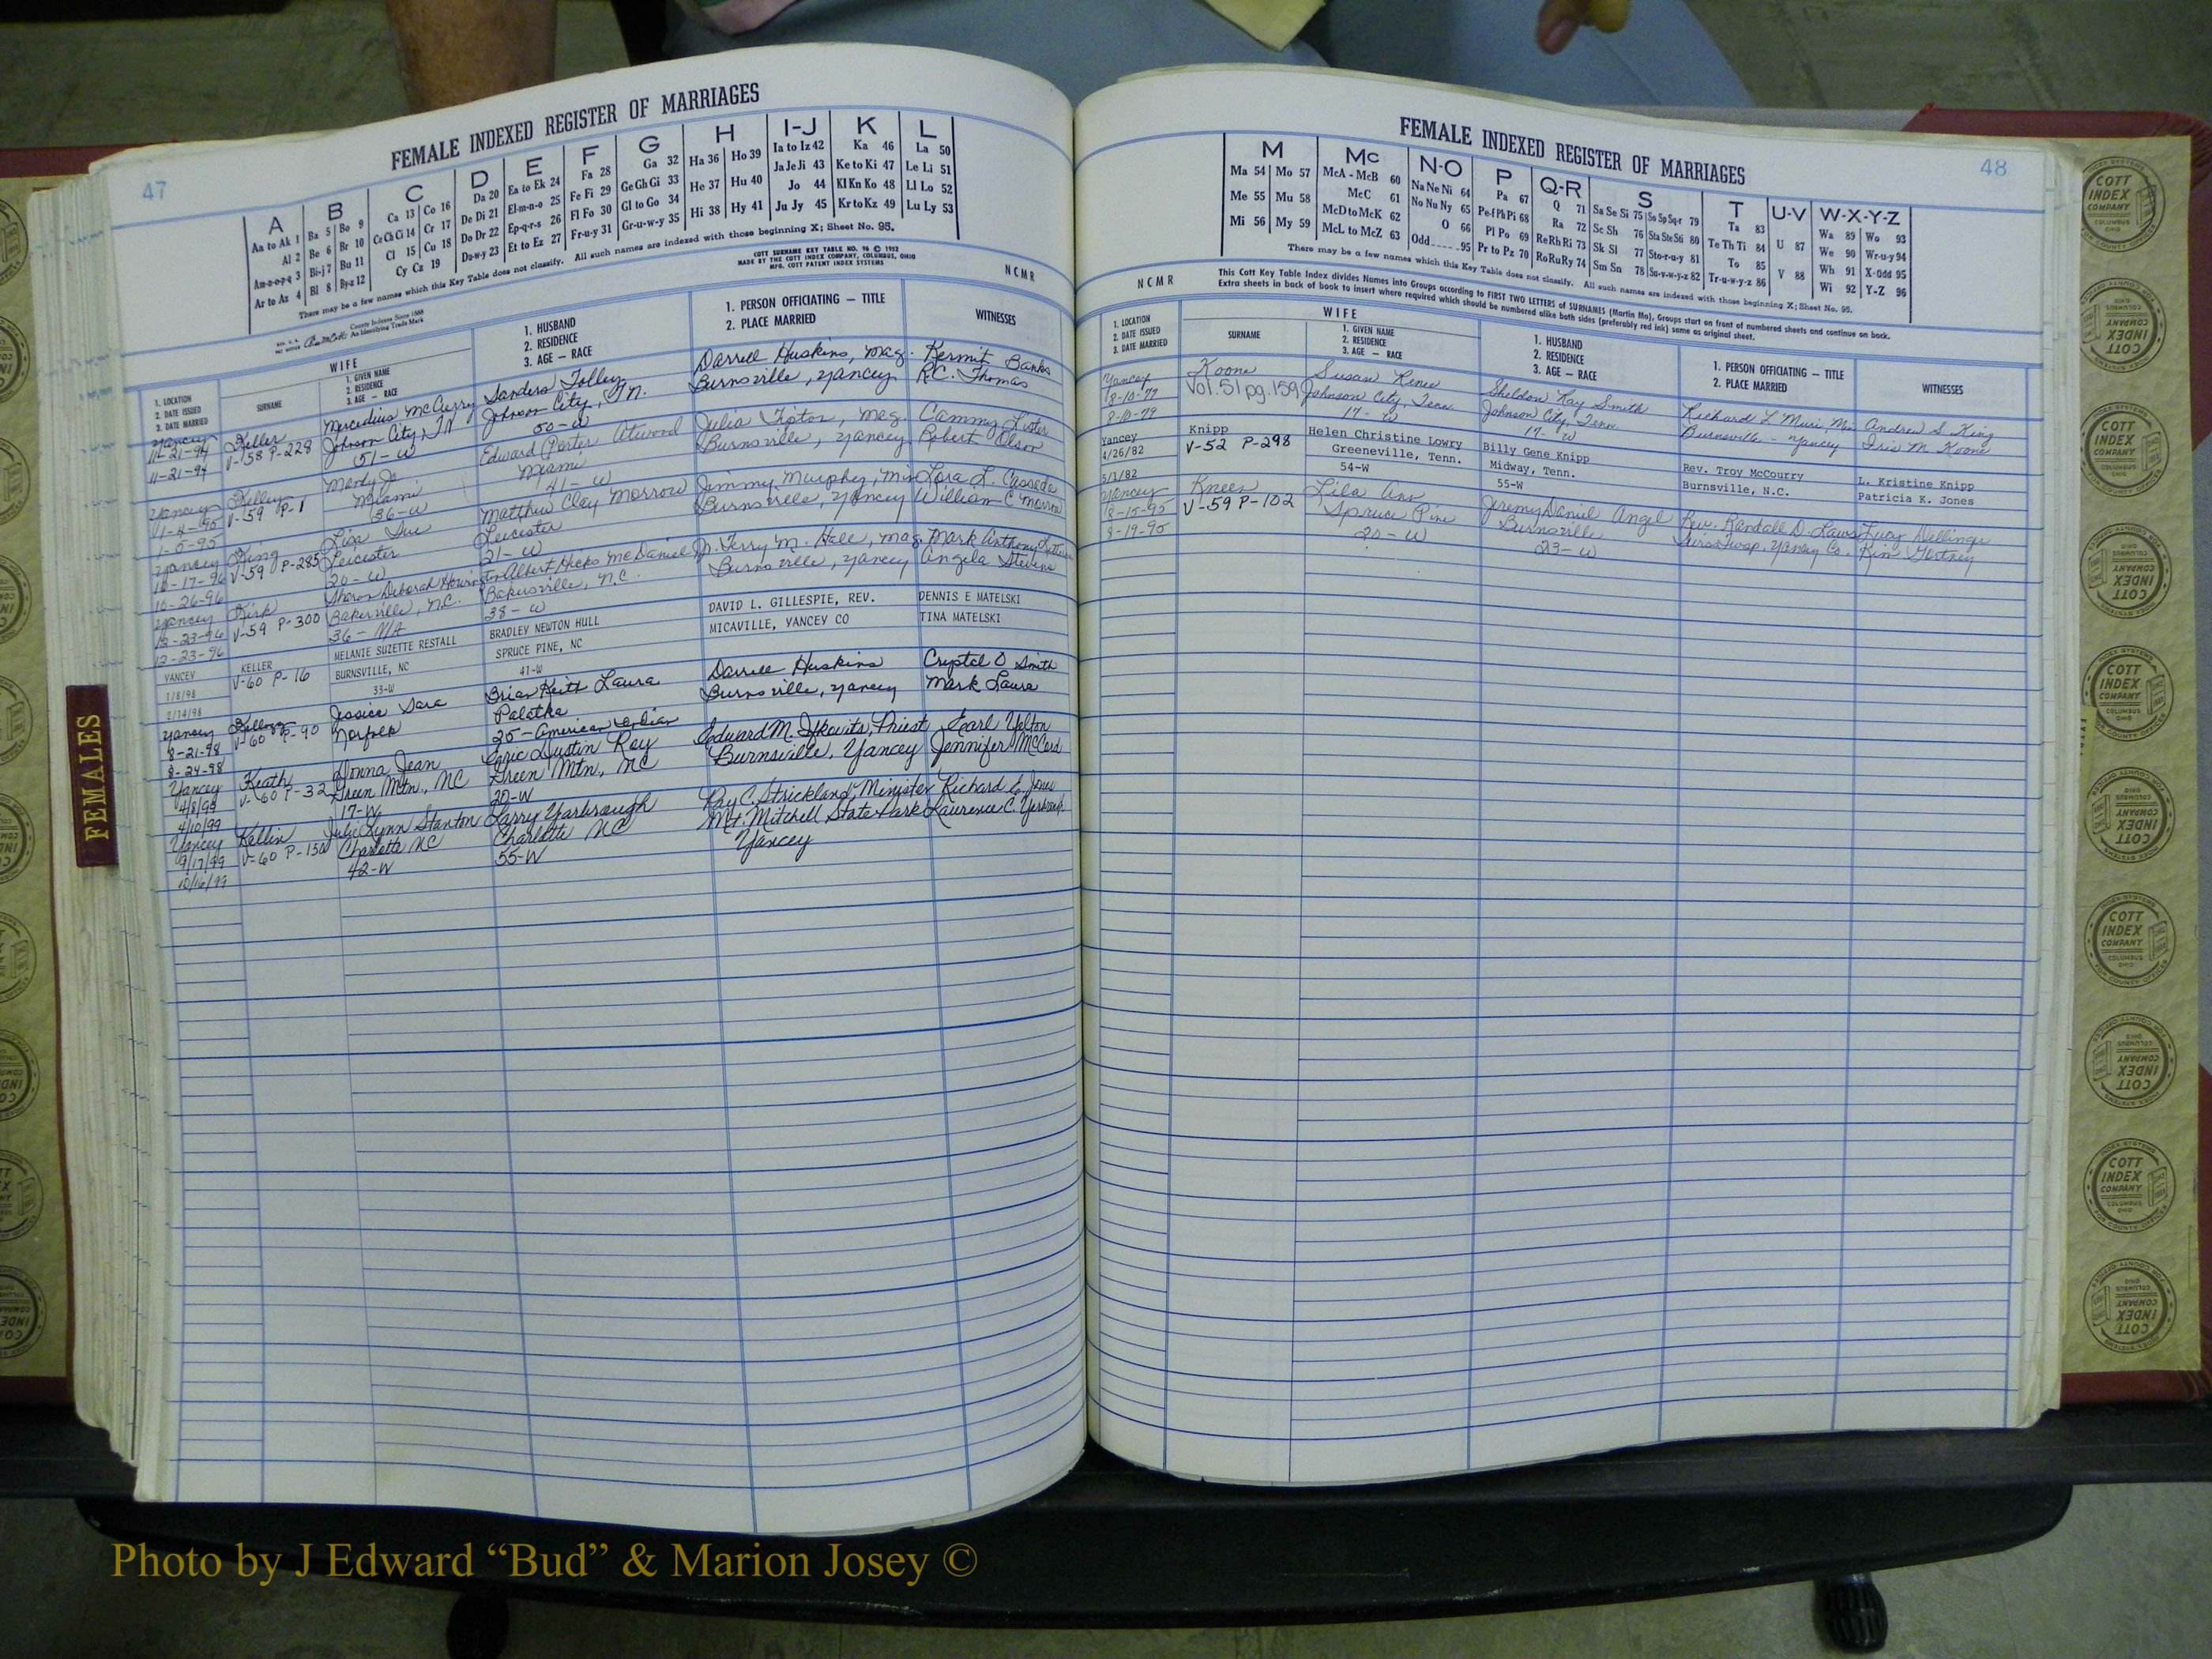 FEMALE INDEXED REGISTER OF MARRIAGES
47
A B C D E F G H I-J K L
Aa to Ak 1 Ba 5 Bo 9 Ca 13 Co 16 Da 20 Ea to Ek 24 Fa 28 Ga 32 Ha 36 Ho 39 Ia to Iz 42 Ka 46 La 50
Al 2 Be 6 Br 10 Ce Ch Ci 14 Cr 17 De Di 21 El-m-n-o 25 Fe Fi 29 Ge Gh Gi 33 He 37 Hu 40 Ja Je Ji 43 Ke to Ki 47 Le Li 51
Am-n-o-p-q 3 Bi-j 7 Bu 11 Cl 15 Cu 18 Do Dr 22 Ep-q-r-s 26 Fl Fo 30 Gl to Go 34 Hi 38 Hy 41 Jo 44 Kl Kn Ko 48 Ll Lo 52
Ar to Az 4 Bl 8 By-z 12 Cy Cz 19 Du-w-y 23 Et to Ez 27 Fr-u-y 31 Gr-u-w-y 35 Ju Jy 45 Kr to Kz 49 Lu Ly 53
There may be a few names which this Key Table does not classify. All such names are indexed with those beginning X; Sheet No. 95.
COTT SURNAME KEY TABLE NO. 96 © 1952
MADE BY THE COTT INDEX COMPANY, COLUMBUS, OHIO
MFG. COTT PATENT INDEX SYSTEMS
County Indexes Since 1888
An Identifying Trade Mark
NCMR
1. LOCATION
2. DATE ISSUED
3. DATE MARRIED
WIFE
SURNAME
1. GIVEN NAME
2. RESIDENCE
3. AGE — RACE
1. HUSBAND
2. RESIDENCE
3. AGE — RACE
1. PERSON OFFICIATING — TITLE
2. PLACE MARRIED
WITNESSES
Yancey Keller Mercedius McCurry Sanders Tolley Darrell Huskins, Mag. Kermit Banks
11-21-94 V-58 P-228 Johnson City, TN Johnson City, Tn. Burnsville, Yancey R.C. Thomas
11-21-94 51-W 50-W
Yancey Kelley Mandy Jo Edward Porter Atwood Julia Tipton, Mag. Cammy Lister
1-4-95 V-59 P-1 Miami Miami Burnsville, Yancey Robert Olson
1-5-95 36-W 41-W
Yancey King Lisa Sue Matthew Clay Morrow Jimmy Murphey, Min Lora L. Cassada
10-17-96 V-59 P-285 Leicester Leicester Burnsville, Yancey William C Morrow
10-26-96 20-W 21-W
Yancey Kirk Sharon Deborah Howington Albert Hicks McDaniel Jr. Terry M. Hall, Mag. Mark Anthony
12-23-96 V-59 P-300 Bakersville, N.C. Bakersville, N.C. Burnsville, Yancey Angela Stevens
12-23-96 36-N/A 38-W
YANCEY KELLER MELANIE SUZETTE RESTALL BRADLEY NEWTON HULL DAVID L. GILLESPIE, REV. DENNIS E MATELSKI
1/8/98 V-60 P-16 BURNSVILLE, NC SPRUCE PINE, NC MICAVILLE, YANCEY CO TINA MATELSKI
2/14/98 33-W 41-W
Yancey Kellogg Jessica Sara Brian Keith Laura Darrell Huskins Crystal D Smith
8-21-98 V-60 P-90 Norfolk Palatka Burnsville, Yancey Mark Laura
8-24-98 25-American Indian
Yancey Keath Donna Jean Eric Dustin Ray Edward M. Ifkovits, Priest Earl Yelton
4/8/99 V-60 P-32 Green Mtn., NC Green Mtn., NC Burnsville, Yancey Jennifer McCord
4/10/99 17-W 20-W
Yancey Kellin Julie Lynn Stanton Larry Yarbrough Ray C. Strickland, Minister Richard E. Jones
9/17/99 V-60 P-150 Charlotte NC Charlotte NC Mt. Mitchell State Park Laurence C. Yarbrough
10/16/99 42-W 55-W Yancey
FEMALES
FEMALE INDEXED REGISTER OF MARRIAGES
48
M Mc N-O P Q-R S T U-V W-X-Y-Z
Ma 54 Mo 57 McA - McB 60 Na Ne Ni 64 Pa 67 Q 71 Sa Se Si 75 So Sp Sq-r 79 Ta 83 U 87 Wa 89 Wo 93
Me 55 Mu 58 McC 61 No Nu Ny 65 Pe-f Ph Pi 68 Ra 72 Sc Sh 76 Sta Ste Sti 80 Te Th Ti 84 V 88 We 90 Wr-u-y 94
Mi 56 My 59 McD to McK 62 O 66 Pl Po 69 Re Rh Ri 73 Sk Sl 77 Sto-r-u-y 81 To 85 Wh 91 X-Odd 95
McL to McZ 63 Odd 95 Pr to Pz 70 Ro Ru Ry 74 Sm Sn 78 Su-v-w-y-z 82 Tr-u-w-y-z 86 Wi 92 Y-Z 96
There may be a few names which this Key Table does not classify. All such names are indexed with those beginning X; Sheet No. 95.
NCMR
This Cott Key Table Index divides Names into Groups according to FIRST TWO LETTERS of SURNAMES (Martin Ma), Groups start on front of numbered sheets and continue on back.
Extra sheets in back of book to insert where required which should be numbered alike both sides (preferably red ink) same as original sheet.
1. LOCATION
2. DATE ISSUED
3. DATE MARRIED
WIFE
SURNAME
1. GIVEN NAME
2. RESIDENCE
3. AGE — RACE
1. HUSBAND
2. RESIDENCE
3. AGE — RACE
1. PERSON OFFICIATING — TITLE
2. PLACE MARRIED
WITNESSES
Yancey Koone Susan Renee Sheldon Kay Smith Richard L Muri Min Andrew S. King
8-10-79 Vol. 51 pg. 159 Johnson City, Tenn Johnson City, Tenn Burnsville - Yancey Iris M. Koone
8-10-79 17-W 17-W
Yancey Knipp Helen Christine Lowry Billy Gene Knipp Rev. Troy McCourry L. Kristine Knipp
4/26/82 V-52 P-298 Greeneville, Tenn. Midway, Tenn. Burnsville, N.C. Patricia K. Jones
5/1/82 54-W 55-W
Yancey Kneen Lila Ann Jeremy Daniel Angel Rev. Randall D. Laws Dellinger
8-15-95 V-59 P-102 Spruce Pine Burnsville Twsp. Yancey Co. Kim
8-19-95 20-W 23-W
COTT INDEX COMPANY
COLUMBUS OHIO
FOR COUNTY OFFICES
INDEX SYSTEMS
Photo by J Edward “Bud” & Marion Josey ©